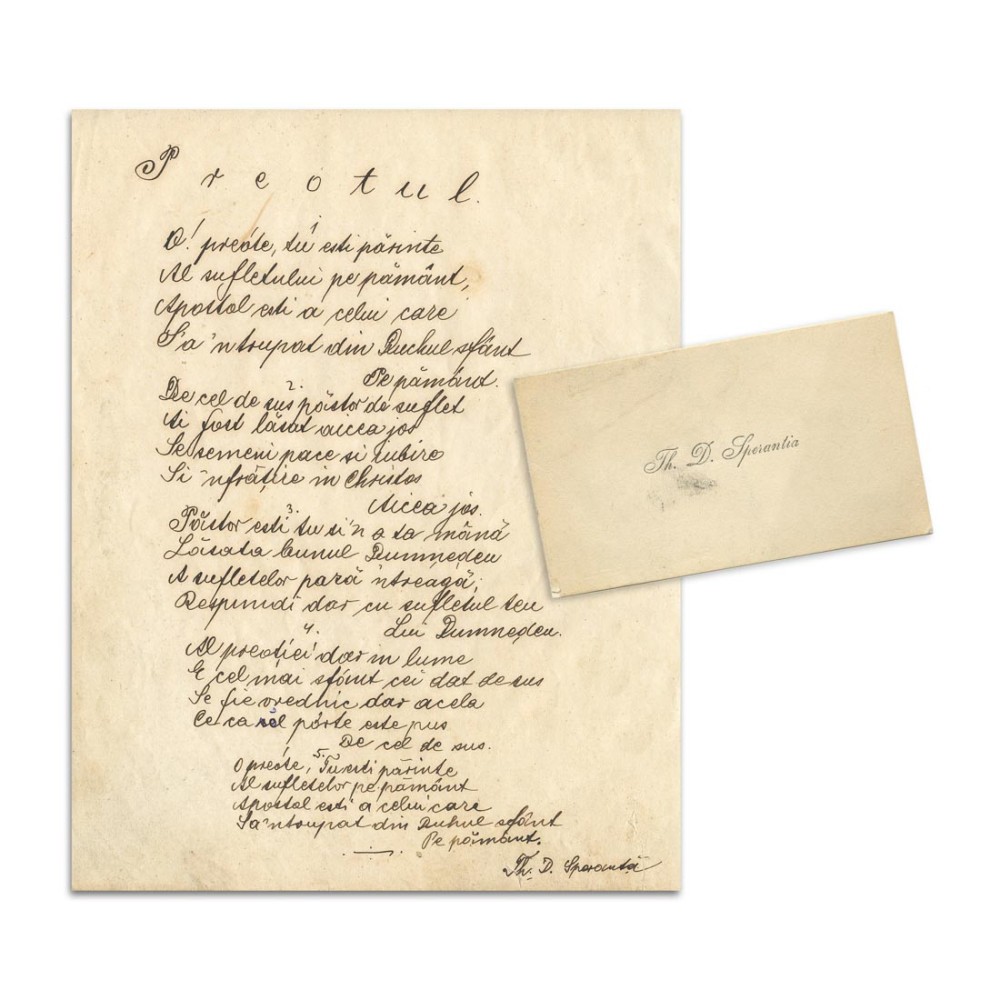 Preotul.
O! preóte, tu esti părinte
Al sufletului pe pământ,
Apostol esti a celui care
S'a 'ntrupat din Duchul sfânt
Pe pământ.
2.
De cel de sus păstor de suflet
Ai fost lăsat aicea jos
Se semeni pace si iubire
Si 'nfrățire in Christos
Aicea jos.
3.
Păstor esti tu si 'n a ta mână
Lăsata bunul Dumnedeu
A sufletelor pară 'ntréagă;
Respundi dar cu sufletul teu
Lui Dumnedeu.
4.
Al preoției dar in lume
E cel mai sfânt cei dat de sus
Se fie vrednic dar acela
Ce ca sĕl pórte este pus
De cel de sus.
5.
O preóte, Tu esti părinte
Al sufletelor pe pământ
Apostol esti a celui care
Sa 'ntrupat din Duhul sfânt
Pe pământ.
Th. D. Sperantă
Th. D. Sperantia